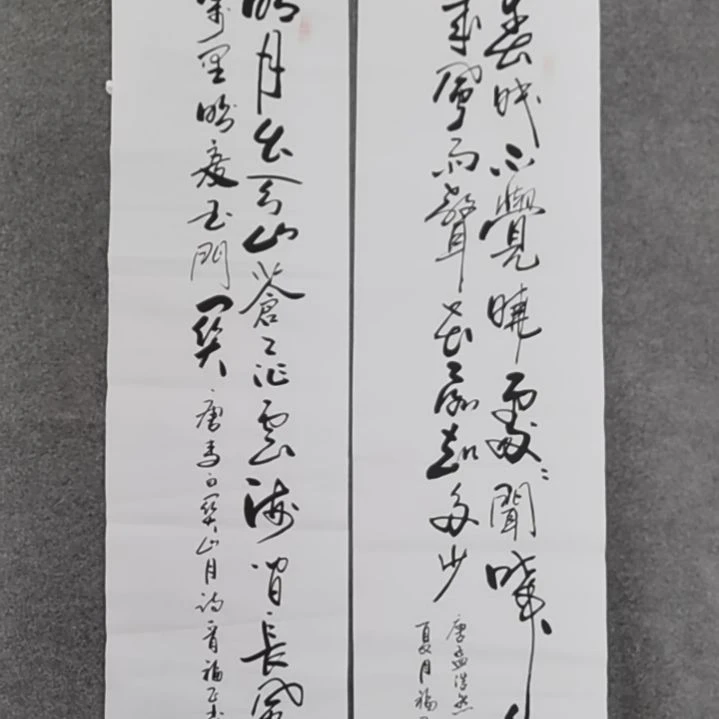 春眠不覺曉處〻聞啼
来風雨聲花落知多少
唐孟浩然
夏月福
明月出天山蒼〻茫雲海间長風
萬里吹度玉門関
唐李白関山月詩